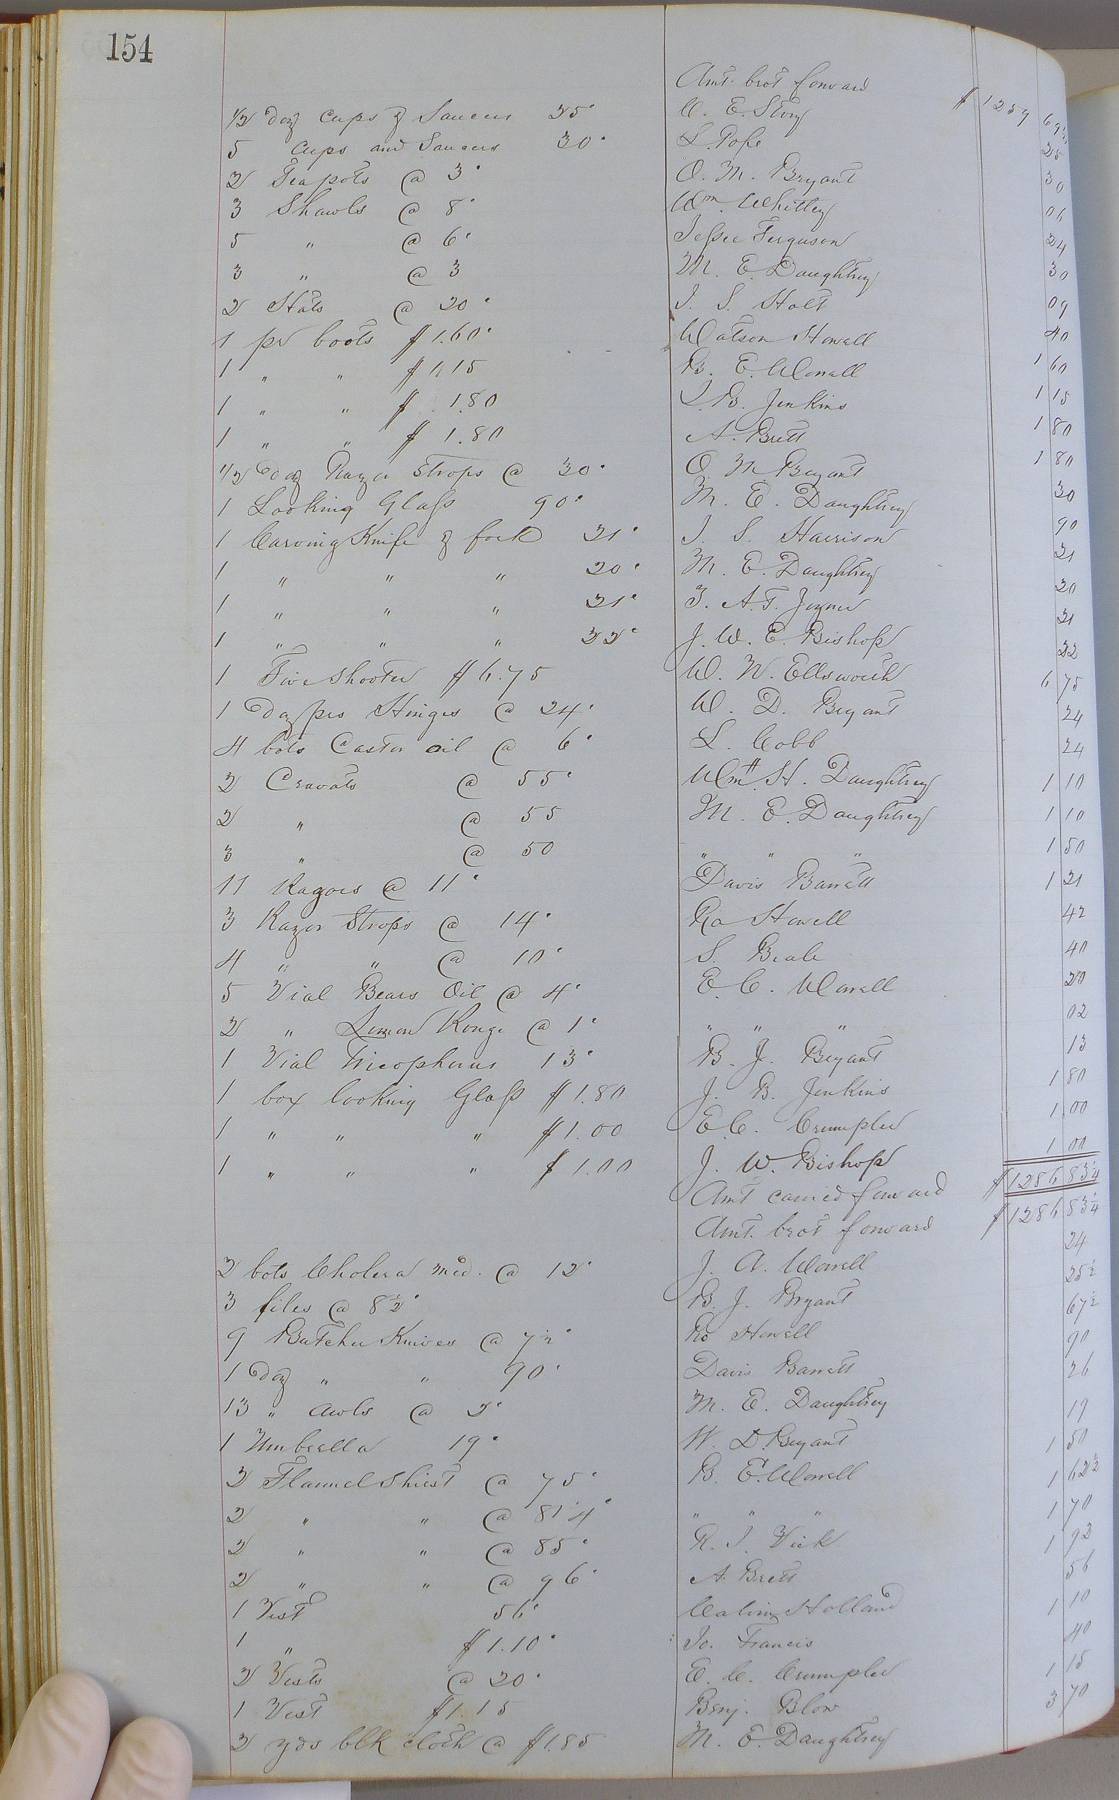 154
Amt. brot forward $1259 69 1/2
1/2 Doz Cups & Saucers 25c W. E. Story 25
5 Cups and Saucers 30c L. Pope 30
2 Teapots @ 3c O. M. Bryant 06
3 Shawls @ 8c Wm. Whitley 24
5 " @ 6c Jessee Ferguson 30
3 " @ 3 M. E. Daughtrey 09
2 Hats @ 20c J. S. Holt 40
1 pr boots $1.60c Watson Howell 1 60
1 " " $1.15 B. E. Worrell 1 15
1 " " $1.80 J. B. Jenkins 1 80
1 " " $1.80 A. Brett 1 80
1/2 Doz Razor Strops @ 30c O M Bryant 30
1 Looking Glass 90c M. E. Daughtrey 90
1 Carving Knife & fork 21c J. S. Harrison 21
1 " " " 20c M. E. Daughtrey 20
1 " " " 21c T. A. T. Joyner 21
1 " " " 22c J. W. E. Bishop 22
1 Five Shooter $6.75 W. N. Ellsworth 6 75
1 Doz prs Hinges @ 24c W. D. Bryant 24
4 bots Castor oil @ 6c L. Cobb 24
2 Cravats @ 55c Wm. H. Daughtrey 1 10
2 " @ 55 M. E. Daughtrey 1 10
3 " @ 50 " " " 1 50
11 Razors @ 11c Davis Barrett 1 21
3 Razor Strops @ 14c Ro Howell 42
4 " " @ 10c S. Beale 40
5 Vial Bears Oil @ 4c E. C. Worrell 20
2 " Lemon Rouge @ 1c " " " 02
1 Vial Tricopherus 13c B. J. Bryant 13
1 box looking Glass $1.80 J. B. Jenkins 1 80
1 " " " $1.00 E. C. Crumpler 1 00
1 " " " $1.00 J. W. Bishop 1 00
Amt carried forward $1286 83 1/4
Amt. brot forward $1286 83 1/4
2 bots Cholera med. @ 12c J. A. Worrell 24
3 files @ 8 1/2c B. J. Bryant 25 1/2
9 Butcher Knives @ 7 1/2c Ro Howell 67 1/2
1 Doz " " 90c Davis Barrett 90
13 " Awls @ 2c M. E. Daughtrey 26
1 Umbrella 19c W. D. Bryant 19
2 Flannel Shirt @ 75c B. E. Worrell 1 50
2 " " @ 81 1/4c " " " 1 62 1/2
2 " " @ 85c R. J. Vick 1 70
2 " " @ 96c A. Brett 1 92
1 Vest 56c Holland 56
1 " $1.10c Jo. Francis 1 10
2 Vests @ 20c E. C. Crumpler 40
1 Vest $1.15 Benj. Blow 1 15
2 yds blk cloth @ $1.85 M. E. Daughtrey 3 70